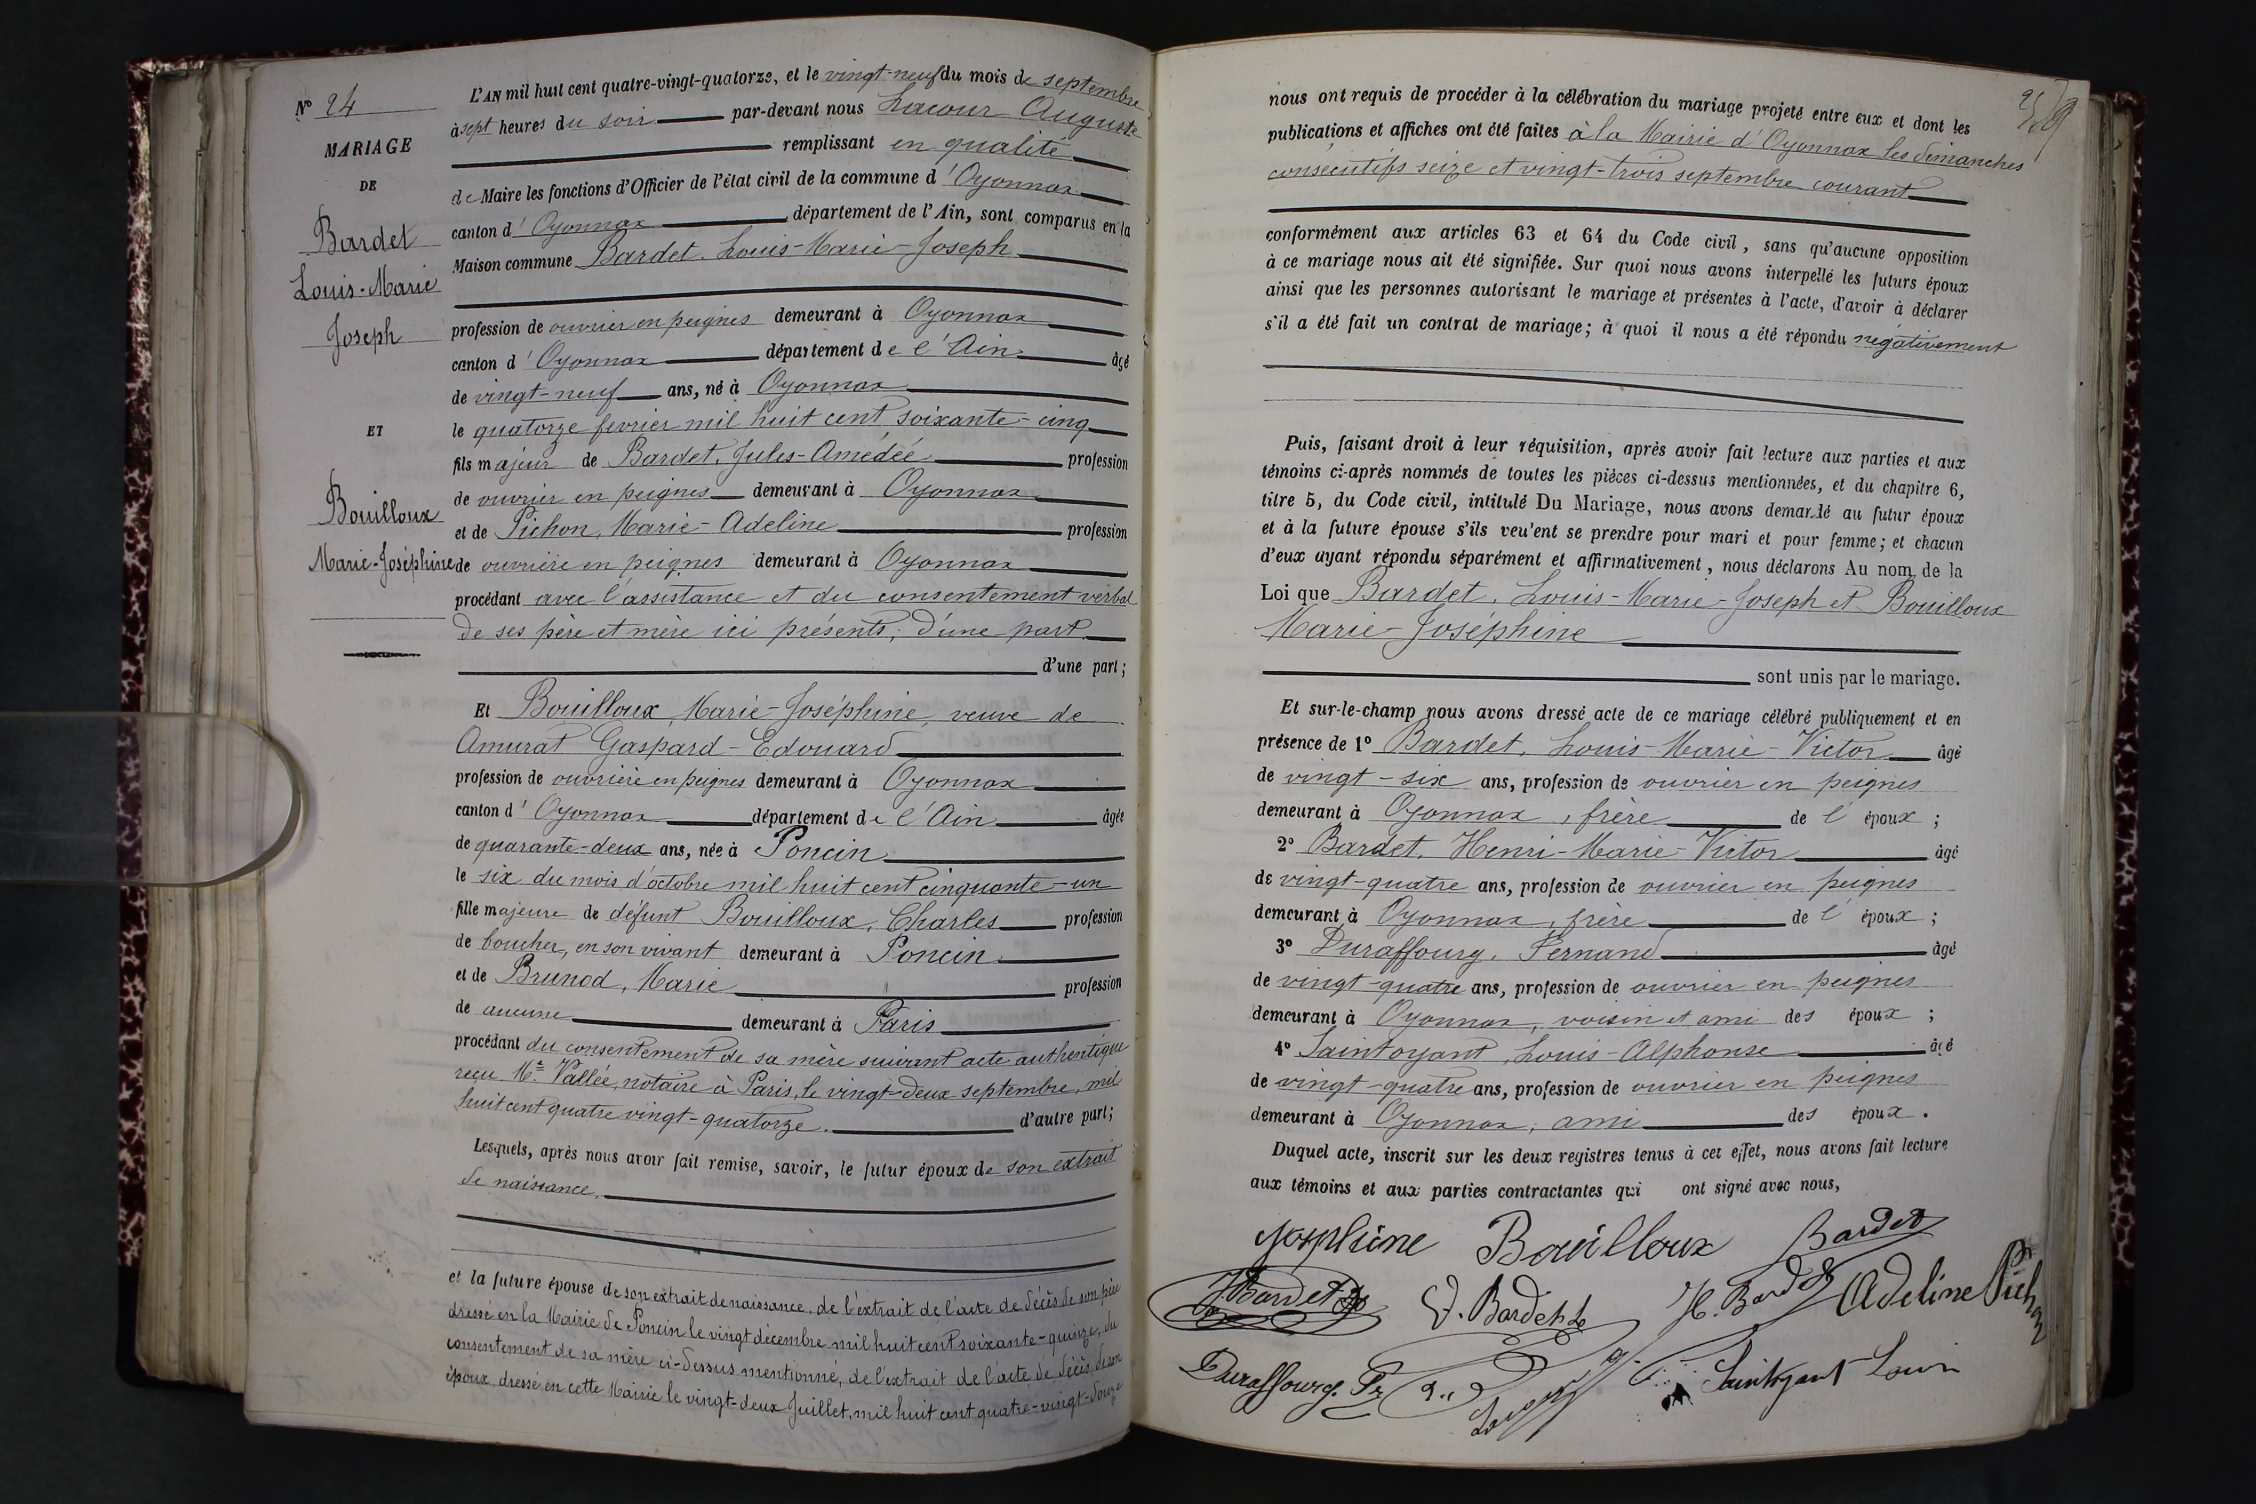 N° 24
MARIAGE
DE
Bardet
Louis-Marie
Joseph
ET
Bouilloux
Marie-Joséphine
L'AN mil huit cent quatre-vingt-quatorze, et le vingt-neuf du mois de septembre
à sept heures du soir par-devant nous Lacour Auguste
remplissant en qualité
de Maire les fonctions d'Officier de l'état civil de la commune d'Oyonnax
canton d'Oyonnax département de l'Ain, sont comparus en la
Maison commune Bardet, Louis-Marie-Joseph
profession de ouvrier en peignes demeurant à Oyonnax
canton d'Oyonnax département de l'Ain âgé
de vingt-neuf ans, né à Oyonnax
le quatorze février mil huit cent soixante-cinq
fils majeur de Bardet, Jules-Amédée profession
de ouvrier en peignes demeurant à Oyonnax
et de Pichon, Marie-Adeline profession
de ouvrière en peignes demeurant à Oyonnax
procédant avec l'assistance et du consentement verbal
de ses père et mère ici présents; d'une part
d'une part;
Et Bouilloux, Marie-Joséphine, veuve de
Amurat Gaspard-Edouard
profession de ouvrière en peignes demeurant à Oyonnax
canton d'Oyonnax département de l'Ain âgée
de quarante-deux ans, née à Poncin
le six du mois d'octobre mil huit cent cinquante-un
fille majeure de défunt Bouilloux, Charles profession
de boucher, en son vivant demeurant à Poncin
et de Brunod, Marie profession
de aucune demeurant à Paris
procédant du consentement de sa mère suivant acte authentique
reçu Me Vallée, notaire à Paris, le vingt-deux septembre, mil
huit cent quatre vingt-quatorze. d'autre part;
Lesquels, après nous avoir fait remise, savoir, le futur époux de son extrait
de naissance,
et la future épouse de son extrait de naissance, de l'extrait de l'acte de décès de son père
dressé en la Mairie de Poncin le vingt décembre mil huit cent soixante-quinze, du
consentement de sa mère ci-dessus mentionné, de l'extrait de l'acte de décès de son
époux dressé en cette Mairie le vingt-deux Juillet, mil huit cent quatre-vingt-douze
nous ont requis de procéder à la célébration du mariage projeté entre eux et dont les
publications et affiches ont été faites à la Mairie d'Oyonnax les dimanches
consécutifs seize et vingt-trois septembre courant
conformément aux articles 63 et 64 du Code civil, sans qu'aucune opposition
à ce mariage nous ait été signifiée. Sur quoi nous avons interpellé les futurs époux
ainsi que les personnes autorisant le mariage et présentes à l'acte, d'avoir à déclarer
s'il a été fait un contrat de mariage; à quoi il nous a été répondu négativement
Puis, faisant droit à leur réquisition, après avoir fait lecture aux parties et aux
témoins ci-après nommés de toutes les pièces ci-dessus mentionnées, et du chapitre 6,
titre 5, du Code civil, intitulé Du Mariage, nous avons demandé au futur époux
et à la future épouse s'ils veulent se prendre pour mari et pour femme; et chacun
d'eux ayant répondu séparément et affirmativement, nous déclarons Au nom de la
Loi que Bardet, Louis-Marie-Joseph et Bouilloux
Marie-Joséphine
sont unis par le mariage.
Et sur-le-champ nous avons dressé acte de ce mariage célébré publiquement et en
présence de 1° Bardet, Louis-Marie-Victor âgé
de vingt-six ans, profession de ouvrier en peignes
demeurant à Oyonnax, frère de l'époux;
2° Bardet, Henri-Marie-Victor âgé
de vingt-quatre ans, profession de ouvrier en peignes
demeurant à Oyonnax, frère de l'époux;
3° Duraffourg, Fernand âgé
de vingt-quatre ans, profession de ouvrier en peignes
demeurant à Oyonnax, voisin et ami des époux;
4° Saintoyant, Louis-Alphonse âgé
de vingt-quatre ans, profession de ouvrier en peignes
demeurant à Oyonnax, ami des époux.
Duquel acte, inscrit sur les deux registres tenus à cet effet, nous avons fait lecture
aux témoins et aux parties contractantes qui ont signé avec nous,
Josephine Bouilloux Bardet
J. Bardet V. Bardet H. Bardet Adeline Pichon
Duraffourg Saintoyant Louis